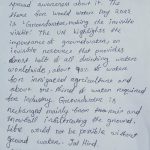 spread awareness about it. The
theme for world water Day 2022
is 'Groundwater: making the Invisible
visible'. The UN highlights the
importance of groundwater, an
invisible resource that provides
almost half of all drinking water
worldwide, about 40% of water
for irrigated agriculture and
about one-third of water required
for industry. Groundwater is
recharged mainly from rain and
snowmelt infiltrating the ground.
Life would not be possible without
ground water.